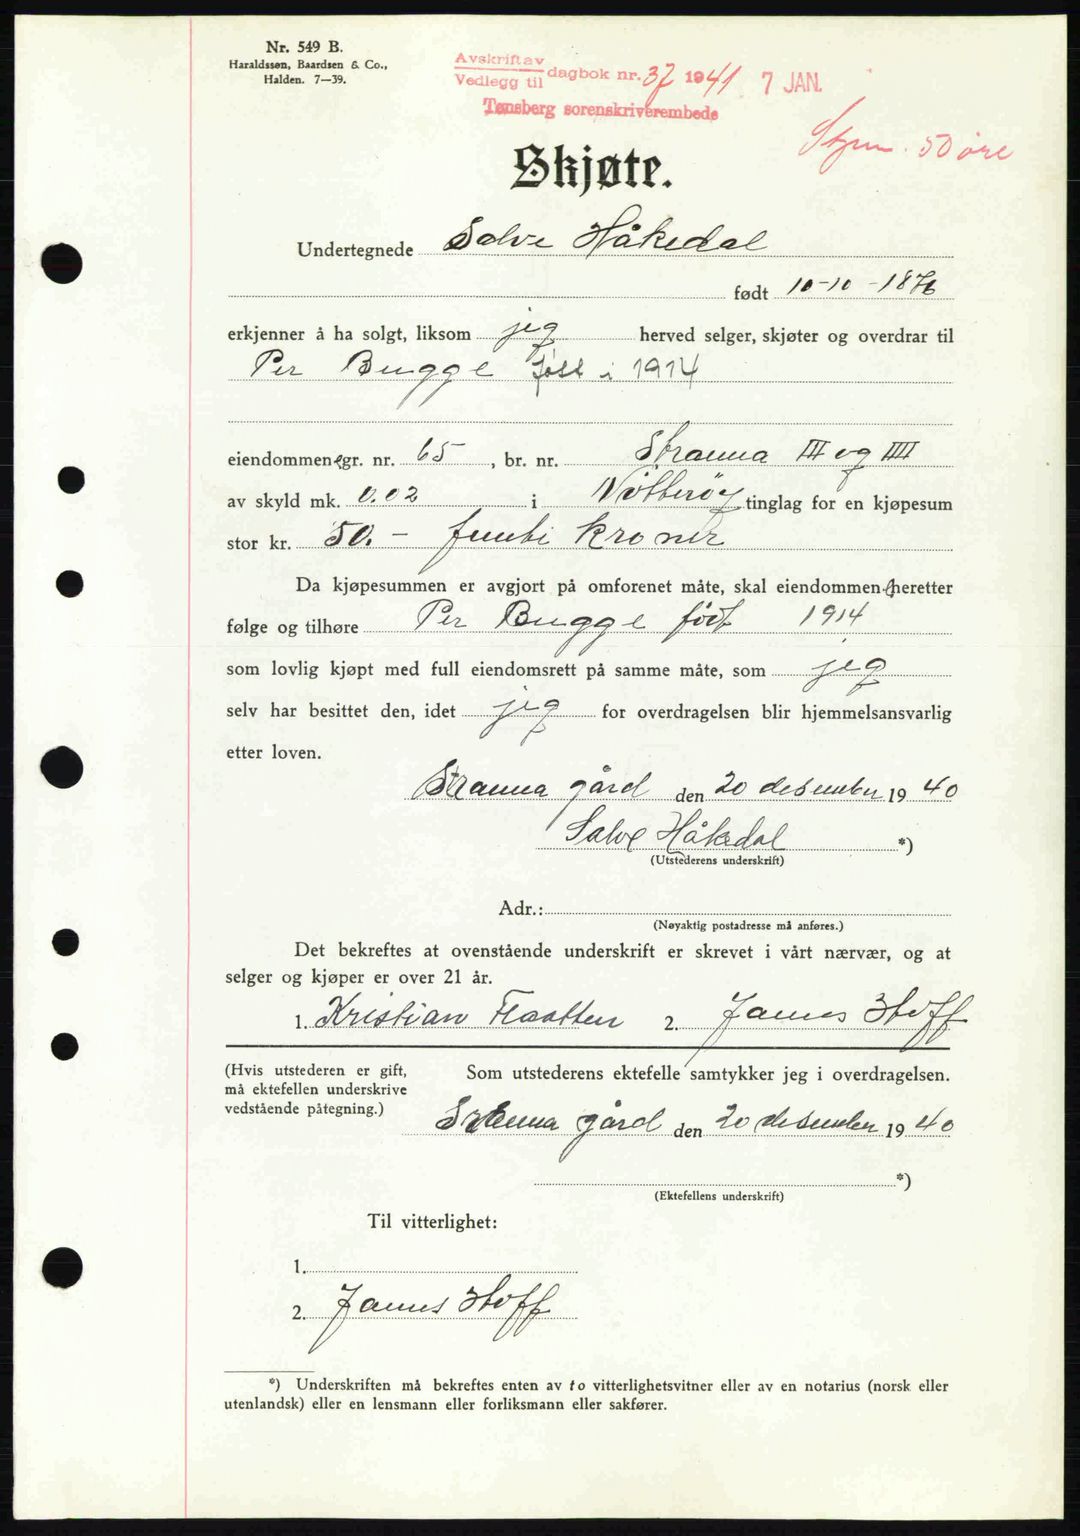 Nr. 549 B.
Haraldssøn, Baardsen & Co.,
Halden. 7—39.
Avskrift av
Vedlegg til dagbok nr. 37 1941 7 JAN.
Tønsberg sorenskriverembede
50 øre
Skjøte.
Undertegnede Salve Håkedal
født 10-10-1876
erkjenner å ha solgt, liksom jeg herved selger, skjøter og overdrar til
Per Bugge født i 1914
eiendommen gr. nr. 65, br. nr. Stranna III og IIII
av skyld mk. 0.02 i Nøtterøy tinglag for en kjøpesum
stor kr. 50.- femti kroner
Da kjøpesummen er avgjort på omforenet måte, skal eiendommen heretter
følge og tilhøre Per Bugge født 1914
som lovlig kjøpt med full eiendomsrett på samme måte, som jeg
selv har besittet den, idet jeg for overdragelsen blir hjemmelsansvarlig
etter loven.
Stranna gård den 20 desember 1940
Salve Håkedal *)
(Utstederens underskrift)
Adr.:
(Nøyaktig postadresse må anføres.)
Det bekreftes at ovenstående underskrift er skrevet i vårt nærvær, og at
selger og kjøper er over 21 år.
1. Kristian Flaatten 2. James Hoff
(Hvis utstederen er gift,
må ektefellen underskrive
vedstående påtegning.)
Som utstederens ektefelle samtykker jeg i overdragelsen.
Stranna gård den 20 desember 1940
*)
(Ektefellens underskrift)
Til vitterlighet:
1.
2. James Hoff
*) Underskriften må bekreftes enten av to vitterlighetsvitner eller av en notarius (norsk eller
utenlandsk) eller en lensmann eller forliksmann eller sakfører.